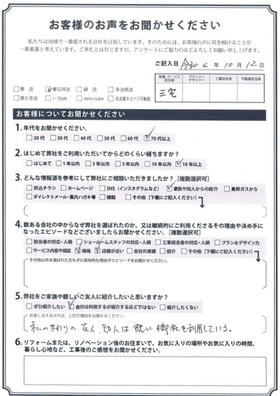 お客様のお声をお聞かせください
私たちは地域で一番愛される会社を目指しています。そのためには、お客様の声に耳を傾けることが
一番重要と考えています。ご多忙とは存じますが、アンケートにご協力のほどよろしくお願い申し上げます。
ご記入日 令和 4年 10月 12日
三宅
お客様についてお聞かせください
1.年代をお聞かせください。
20代 30代 40代 50代 60代 70代以上
2.はじめて弊社をご利用いただいてからどのくらい経ちますか?
はじめて 1年以内 3年以内 5年以内 10年以内 10年以上
3.どんな情報源を参考にして弊社にご相談いただきましたか?【複数選択可】
折込チラシ ホームページ SNS(インスタグラムなど) 家族や知人からの紹介 東邦ガスから
ダイレクトメール・案内ハガキ 看板 その他(下欄にご記入ください)
4.数ある会社の中からなぜ弊社を選ばれたのか、又は継続的にご利用くださるその理由や決め手に
なったエピソードなどございましたらお聞かせください。【複数選択可】
担当者の対応・人柄 ショールームスタッフの対応・人柄 工事担当者の対応・人柄 プラン&デザイン力
サービス内容や保証 価格 店舗が近い 会社の対応 紹介 その他(下欄にご記入ください)
5.弊社をご家族や親しいご友人に紹介したいと思いますか?
ぜひ紹介したい 自分は利用するが紹介するほどではない 紹介したくない
私のまわりの友人、知人は既に御社を利用している。
6.リフォームまたは、リノベーション後のお住まいで、お気に入りの場所やお気に入りの時間、
暮らし心地など、工事後のご感想をお聞かせください。